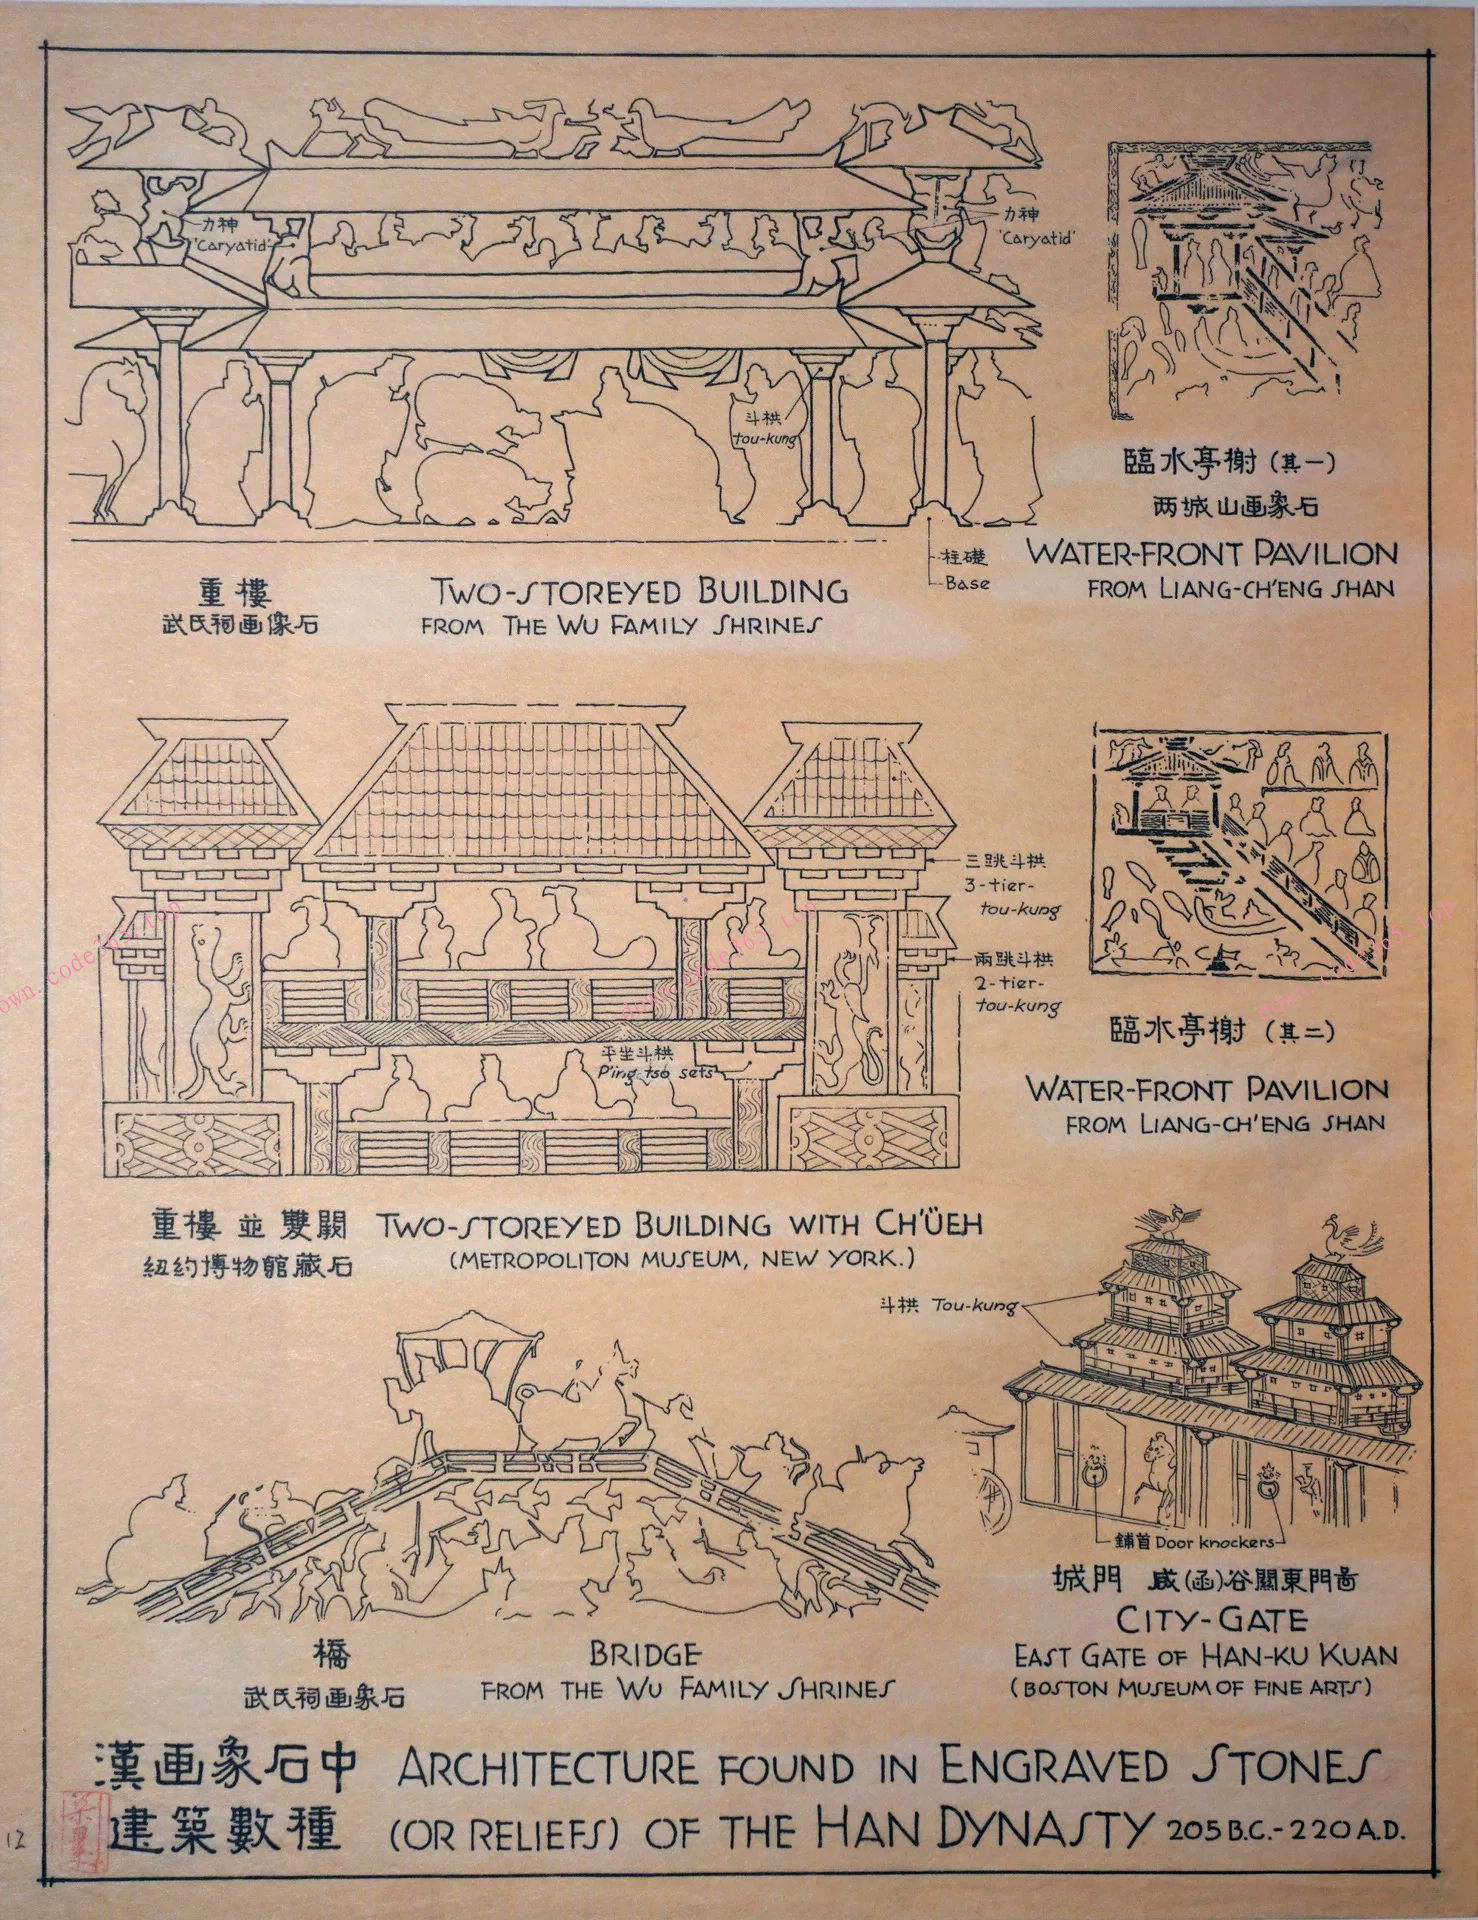 力神
'Caryatid'
力神
'Caryatid'
斗栱
tou-kung
柱礎
Base
重樓
武氏祠画像石
TWO-STOREYED BUILDING
FROM THE WU FAMILY SHRINES
臨水亭榭(其一)
两城山画象石
WATER-FRONT PAVILION
FROM LIANG-CH'ENG SHAN
三跳斗栱
3-tier-
tou-kung
兩跳斗栱
2-tier-
tou-kung
平坐斗栱
P'ing-tso sets
重樓 並 雙闕
紐約博物館藏石
TWO-STOREYED BUILDING WITH CH'ÜEH
(METROPOLITON MUSEUM, NEW YORK.)
臨水亭榭 (其二)
WATER-FRONT PAVILION
FROM LIANG-CH'ENG SHAN
斗栱 Tou-kung
鋪首 Door knockers
城門 咸(函)谷關東門啚
CITY-GATE
EAST GATE OF HAN-KU KUAN
(BOSTON MUSEUM OF FINE ARTS)
橋
武氏祠画象石
BRIDGE
FROM THE WU FAMILY SHRINES
漢画象石中
建築數種
ARCHITECTURE FOUND IN ENGRAVED STONES
(OR RELIEFS) OF THE HAN DYNASTY 205 B.C.-220 A.D.
12